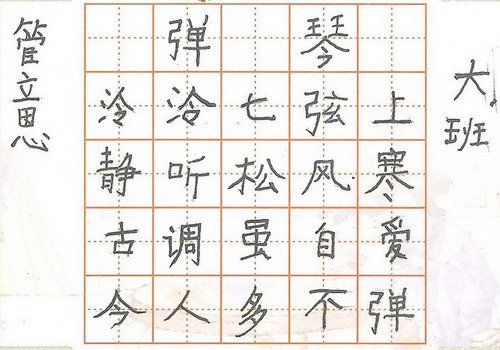 管立思
弹琴
泠泠七弦上
静听松风寒
古调虽自爱
今人多不弹
大班